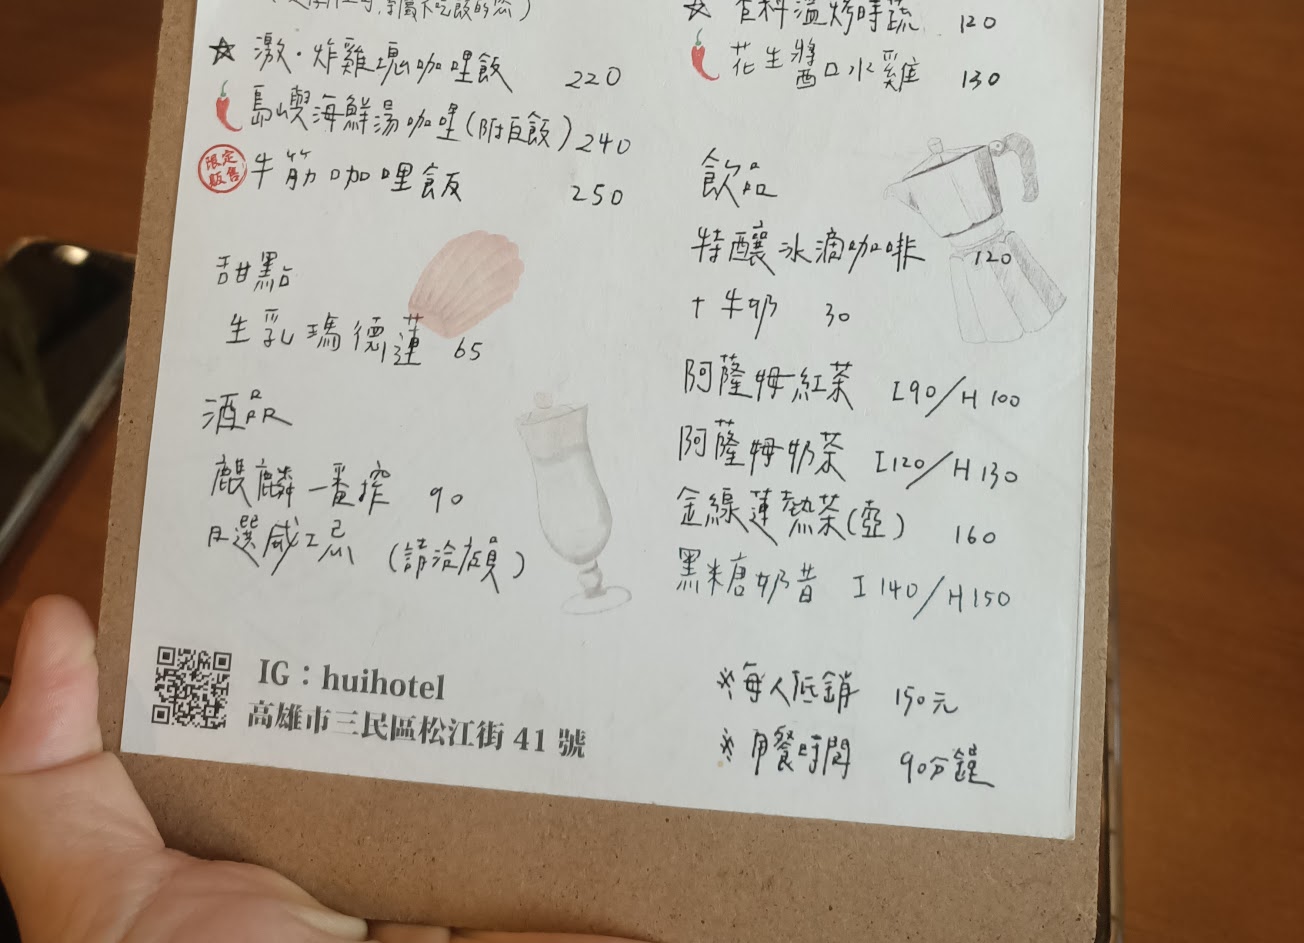 ☆ 激·炸雞塊咖哩飯 220
島嶼海鮮湯咖哩(附白飯) 240
限定
販售
牛筋咖哩飯 250
甜點
生乳瑪德蓮 65
酒品
麒麟一番搾 90
自選威士忌 (請洽店員)
IG：huihotel
高雄市三民區松江街 41 號
☆ 香料溫烤時蔬 120
花生醬口水雞 130
飲品
特釀冰滴咖啡 120
+ 牛奶 30
阿薩姆紅茶 I 90/H 100
阿薩姆奶茶 I 120/H 130
金線蓮熱茶(壺) 160
黑糖奶昔 I 140/H 150
※每人低銷 150元
※用餐時間 90分鐘